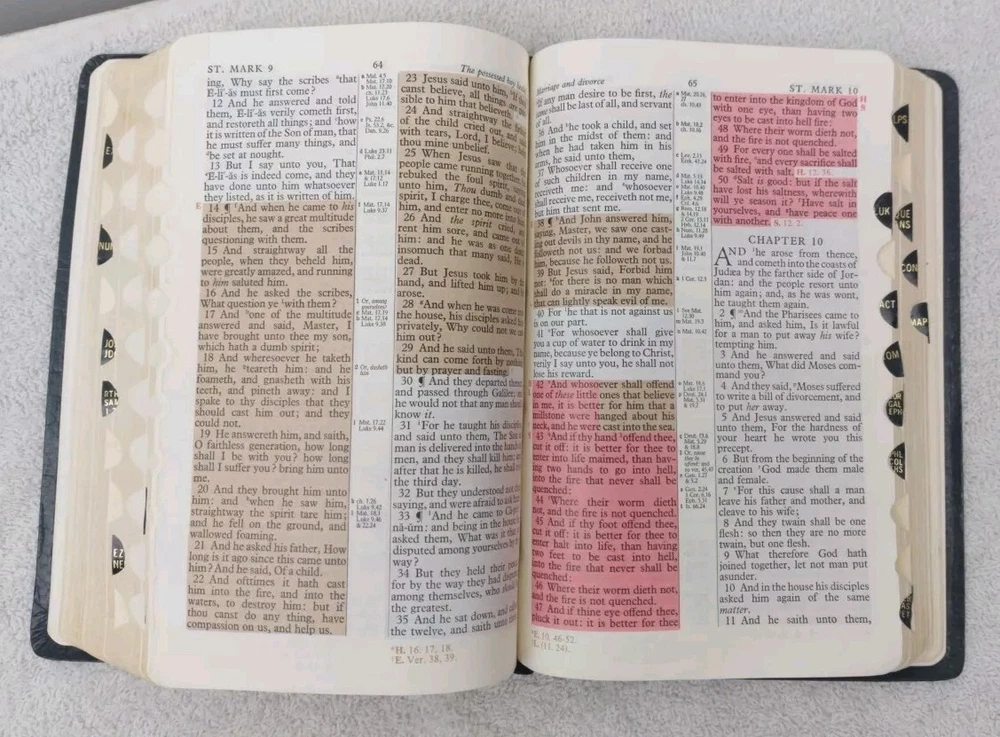 ST. MARK 9
64
The possessed
ing, Why say the scribes that
E-lī'-ăs must first come?
12 And he answered and told
them, E-lī'-ăs verily cometh first,
and restoreth all things; and how
it is written of the Son of man, that
he must suffer many things, and
be set at nought.
13 But I say unto you, That
E-lī'-ăs is indeed come, and they
have done unto him whatsoever
they listed, as it is written of him.
14 ¶ And when he came to his
disciples, he saw a great multitude
about them, and the scribes
questioning with them.
15 And straightway all the
people, when they beheld him,
were greatly amazed, and running
to him saluted him.
16 And he asked the scribes,
What question ye with them?
17 And one of the multitude
answered and said, Master, I
have brought unto thee my son,
which hath a dumb spirit;
18 And wheresoever he taketh
him, he teareth him: and he
foameth, and gnasheth with his
teeth, and pineth away: and I
spake to thy disciples that they
should cast him out; and they
could not.
19 He answereth him, and saith,
O faithless generation, how long
shall I be with you? how long
shall I suffer you? bring him unto
me.
20 And they brought him unto
him: and when he saw him,
straightway the spirit tare him;
and he fell on the ground, and
wallowed foaming.
21 And he asked his father, How
long is it ago since this came unto
him? And he said, Of a child.
22 And ofttimes it hath cast
him into the fire, and into the
waters, to destroy him: but if
thou canst do any thing, have
compassion on us, and help us.
23 Jesus said unto him, If thou
canst believe, all things are
sible to him that believeth.
24 And straightway the
of the child cried out, and
with tears, Lord, I believe;
thou mine unbelief.
25 When Jesus saw that
people came running together,
rebuked the foul spirit,
unto him, Thou dumb and
spirit, I charge thee, come
him, and enter no more into
26 And the spirit cried, and
rent him sore, and came out
him: and he was as one
insomuch that many said, He
dead.
27 But Jesus took him by
hand, and lifted him up; and
arose.
28 And when he was come
the house, his disciples asked
privately, Why could not we
him out?
29 And he said unto them, This
kind can come forth by nothing
but by prayer and fasting.
30 ¶ And they departed
and passed through Galilee; and
he would not that any man should
know it.
31 For he taught his disciples
and said unto them, The Son
man is delivered into the hands
men, and they shall kill him;
after that he is killed, he shall
the third day.
32 But they understood not
saying, and were afraid to ask
33 ¶ And he came to
nā-ŭm: and being in the house
asked them, What was it that
disputed among yourselves by
way?
34 But they held their peace
for by the way they had disputed
among themselves, who should
the greatest.
35 And he sat down, and called
the twelve, and saith unto them
H. 16. 17. 18.
E. Ver. 38, 39.
Marriage and divorce
65
ST. MARK 10
If any man desire to be first, the
same shall be last of all, and servant
of all.
36 And he took a child, and set
him in the midst of them: and
when he had taken him in his
arms, he said unto them,
37 Whosoever shall receive one
of such children in my name,
receiveth me: and whosoever
shall receive me, receiveth not me,
but him that sent me.
38 ¶ And John answered him,
saying, Master, we saw one cast-
ing out devils in thy name, and he
followeth not us: and we forbad
him, because he followeth not us.
39 But Jesus said, Forbid him
not: for there is no man which
shall do a miracle in my name,
that can lightly speak evil of me.
40 For he that is not against us
is on our part.
41 For whosoever shall give
you a cup of water to drink in my
name, because ye belong to Christ,
verily I say unto you, he shall not
lose his reward.
42 And whosoever shall offend
one of these little ones that believe
in me, it is better for him that a
millstone were hanged about his
neck, and he were cast into the sea.
43 And if thy hand offend thee,
cut it off: it is better for thee to
enter into life maimed, than hav-
ing two hands to go into hell,
into the fire that never shall be
quenched:
44 Where their worm dieth
not, and the fire is not quenched.
45 And if thy foot offend thee,
cut it off: it is better for thee to
enter halt into life, than having
two feet to be cast into hell,
into the fire that never shall be
quenched:
46 Where their worm dieth not,
and the fire is not quenched.
47 And if thine eye offend thee,
pluck it out: it is better for thee
E. 19. 46-52.
L. (11. 24).
to enter into the kingdom of God
with one eye, than having two
eyes to be cast into hell fire:
48 Where their worm dieth not,
and the fire is not quenched.
49 For every one shall be salted
with fire, and every sacrifice shall
be salted with salt. H. 12. 38.
50 Salt is good: but if the salt
have lost his saltness, wherewith
will ye season it? Have salt in
yourselves, and have peace one
with another. S. 12. 2.
CHAPTER 10
AND he arose from thence,
and cometh into the coasts of
Judæa by the farther side of Jor-
dan: and the people resort unto
him again; and, as he was wont,
he taught them again.
2 ¶ And the Pharisees came to
him, and asked him, Is it lawful
for a man to put away his wife?
tempting him.
3 And he answered and said
unto them, What did Moses com-
mand you?
4 And they said, Moses suffered
to write a bill of divorcement, and
to put her away.
5 And Jesus answered and said
unto them, For the hardness of
your heart he wrote you this
precept.
6 But from the beginning of the
creation God made them male
and female.
7 For this cause shall a man
leave his father and mother, and
cleave to his wife;
8 And they twain shall be one
flesh: so then they are no more
twain, but one flesh.
9 What therefore God hath
joined together, let not man put
asunder.
10 And in the house his disciples
asked him again of the same
matter.
11 And he saith unto them,
LUK
QUE
ANS
CON
ACT
MAP